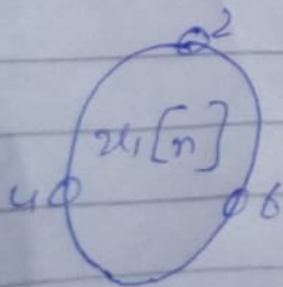 2
x₁[n]
4
6